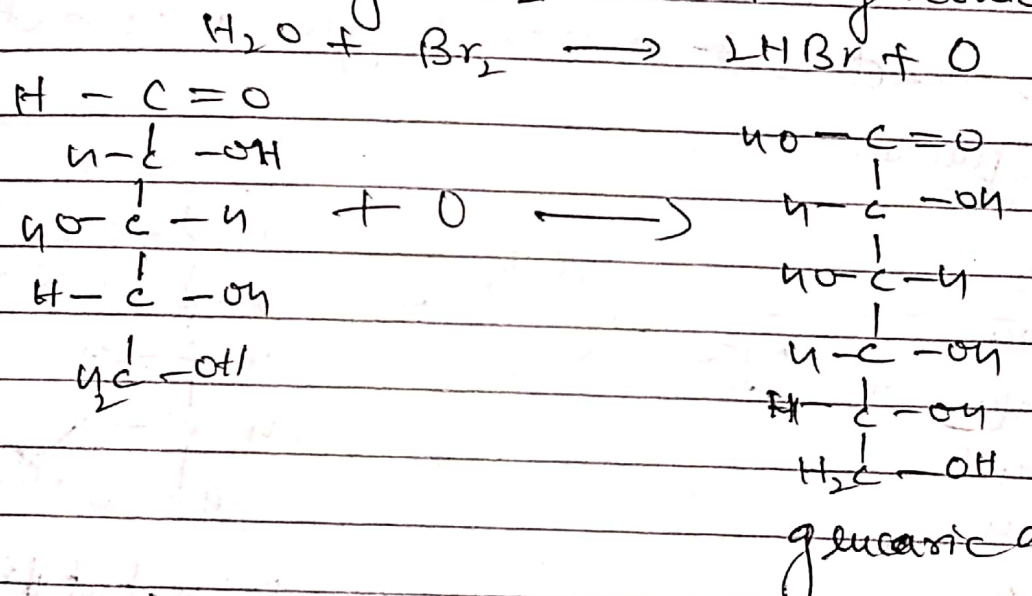 H₂O + Br₂ → 2HBr + O
H - C = O
H - C - OH
HO - C - H + O →
H - C - OH
H₂C - OH
HO - C = O
H - C - OH
HO - C - H
H - C - OH
H - C - OH
H₂C - OH
glucaric